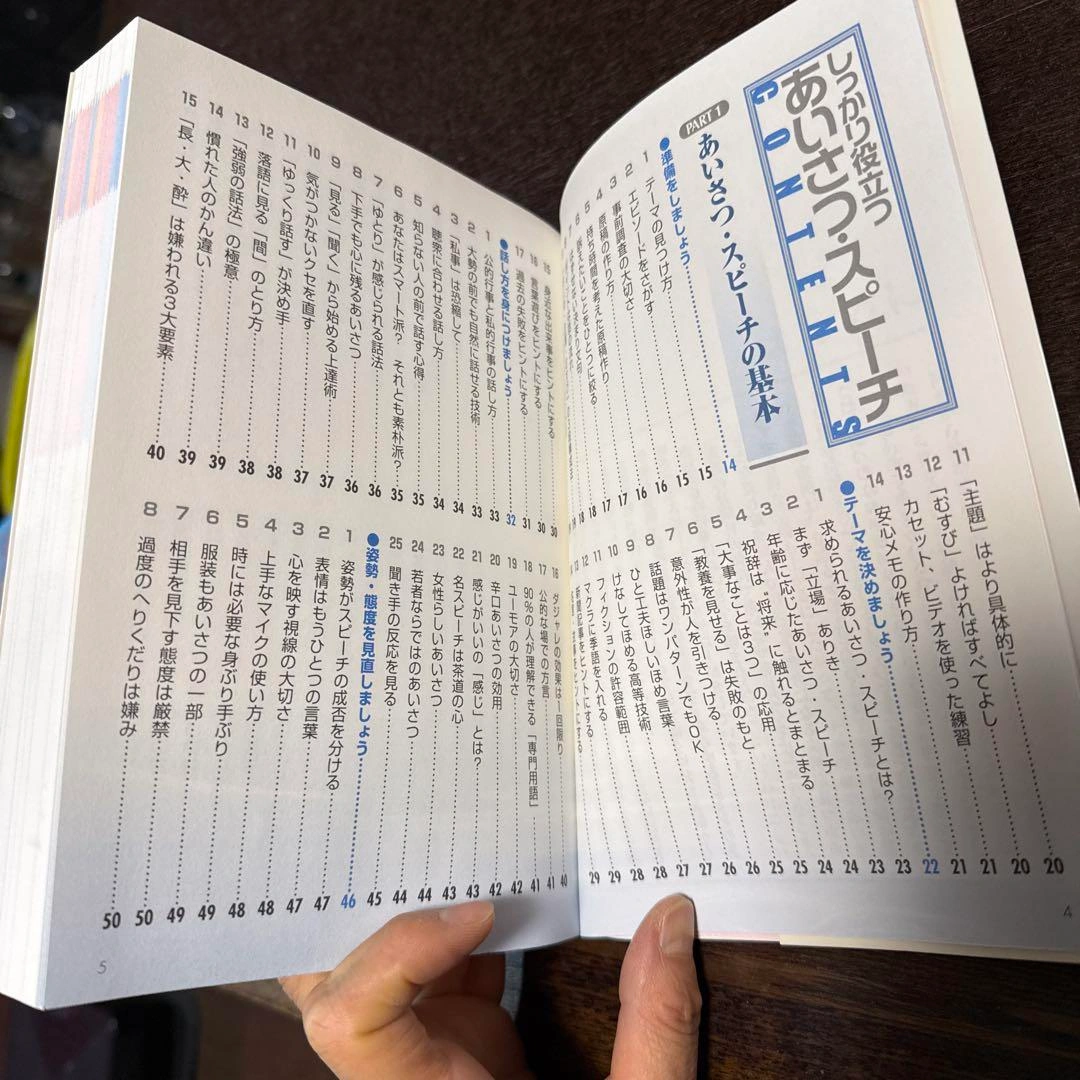 しっかり役立つ
あいさつ・スピーチ
CONTENTS
PART1 あいさつ・スピーチの基本
●準備をしましょう……14
1 テーマの見つけ方……15
2 エピソードをさがす……15
3 事前調査の大切さ……16
4 原稿の作り方……16
5 持ち時間を考えた原稿作り……17
6 訴えたいことをひとつに絞る……17
11 「主題」はより具体的に……20
12 「むすび」よければすべてよし……20
13 カセット、ビデオを使った練習……21
14 安心メモの作り方……21
●テーマを決めましょう……22
1 求められるあいさつ・スピーチとは？……23
2 まず「立場」ありき……23
3 年齢に応じたあいさつ・スピーチ……24
4 祝辞は“将来”に触れるとまとまる……24
5 「大事なことは3つ」の応用……25
6 「教養を見せる」は失敗のもと……25
7 意外性が人を引きつける……26
8 話題はワンパターンでもOK……26
9 ひと工夫ほしいほめ言葉……27
10 けなしてほめる高等技術……27
11 フィクションの許容範囲……28
12 マクラに季語を入れる……28
13 新聞記事をヒントにする……29
4
15 身近な出来事をヒントにする……30
16 言葉遊びをヒントにする……30
17 過去の失敗をヒントにする……31
●話し方を身につけましょう……32
1 公的行事と私的行事の話し方……33
2 大勢の前でも自然に話せる技術……33
3 「私事」は恐縮して……34
4 聴衆に合わせる話し方……34
5 知らない人の前で話す心得……35
6 あなたはスマート派？ それとも素朴派？……35
7 「ゆとり」が感じられる話法……36
8 下手でも心に残るあいさつ……36
9 「見る」「聞く」から始める上達術……37
10 気がつかないクセを直す……37
11 「ゆっくり話す」が決め手……38
12 落語に見る「間」のとり方……38
13 「強弱の話法」の極意……39
14 慣れた人のかん違い……39
15 「長・大・酔」は嫌われる3大要素……40
16 ダジャレの効果は一回限り……40
17 公的な場での方言……41
18 90％の人が理解できる「専門用語」……41
19 ユーモアの大切さ……42
20 辛口あいさつの効用……42
21 感じがいいの「感じ」とは？……43
22 名スピーチは茶道の心……43
23 女性らしいあいさつ……44
24 若者ならではのあいさつ……44
25 聞き手の反応を見る……45
●姿勢・態度を見直しましょう……46
1 姿勢がスピーチの成否を分ける……47
2 表情はもうひとつの言葉……47
3 心を映す視線の大切さ……48
4 上手なマイクの使い方……48
5 時には必要な身ぶり手ぶり……49
6 服装もあいさつの一部……49
7 相手を見下す態度は厳禁……50
8 過度のへりくだりは嫌み……50
5